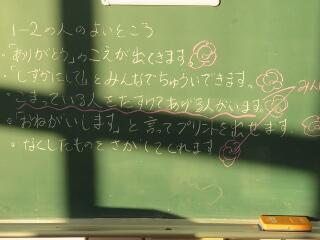 1-2の人のよいところ
・「ありがとう」のこえが出てきます。
・「しずかにして」とみんなでちゅういできます。
・こまっている人をたすけてあげる人がいます。
・「おねがいします」と言ってプリントを出せます
・なくしたものをさがしてくれます
みん